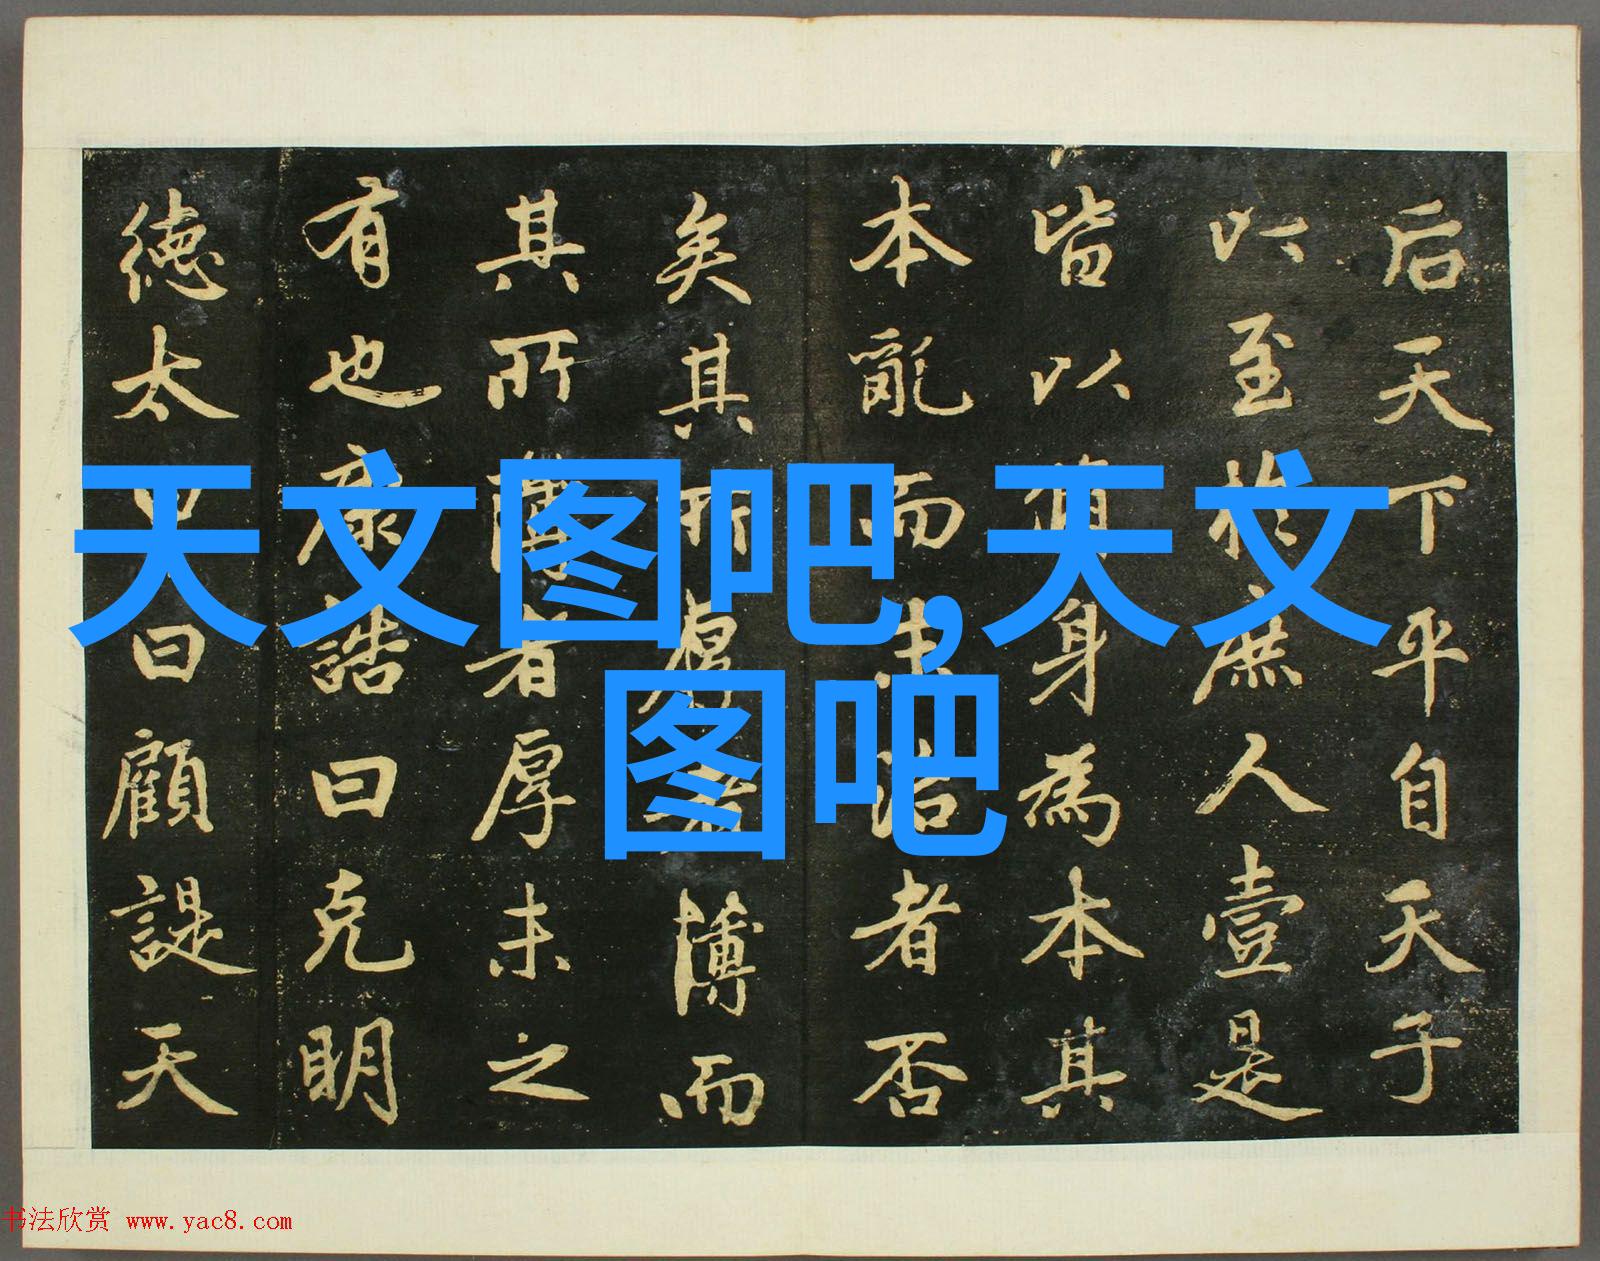 后天下平自天子
以至於庶人壹是
皆以脩身為本其
本亂而末治者否
矣其所厚者薄而
其所薄者厚未之
有也康誥曰克明
德太甲曰顧諟天
天文图吧,天文
图吧
书法欣赏 www.yac8.com